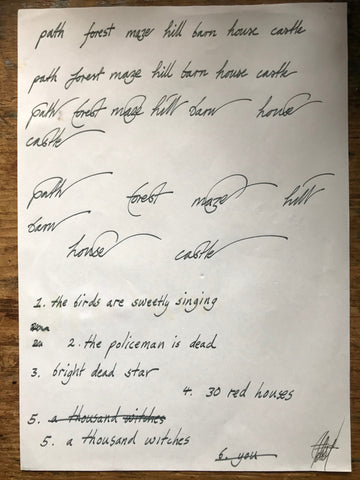 path forest maze hill barn house castle
path forest maze hill barn house castle
path forest maze hill barn house
castle
path forest maze hill
barn
house castle
1. the birds are sweetly singing
2a 2. the policeman is dead
3. bright dead star
4. 30 red houses
5. a thousand witches
5. a thousand witches
6. you